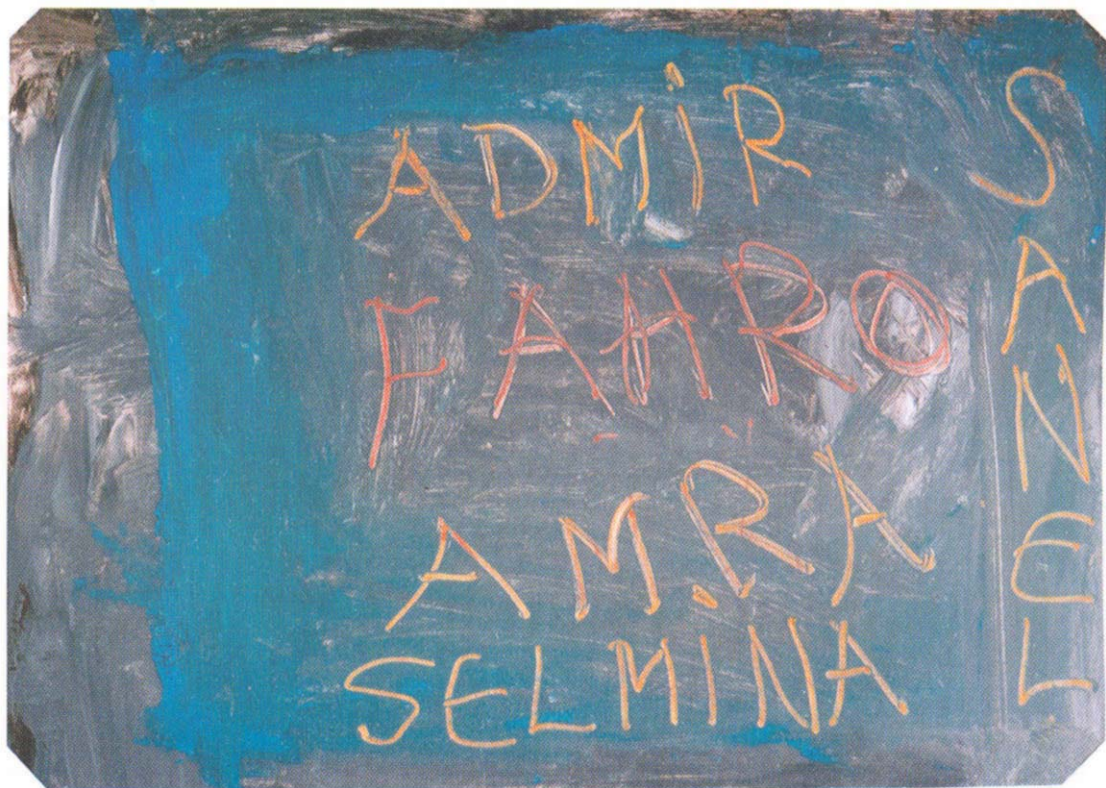 ADMiR
FAHRO
AMRA
SELMINA
SANEL